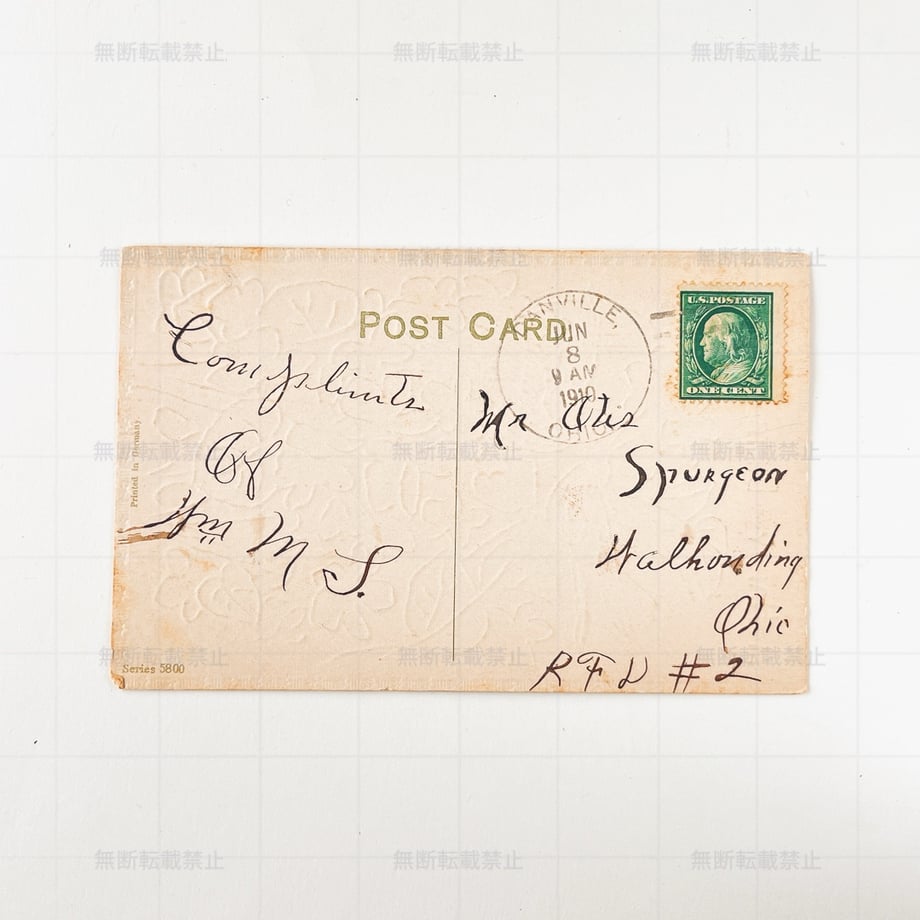 無断転載禁止 無断転載禁止 無断転載禁止
無断転載禁止 無断転載禁止 無断転載禁止
POST CARD
ANVILLE,
JUN
8
9 AM
1910
OHIO
U.S. POSTAGE
ONE CENT
Complimts
Of
Wm M S.
Mr Otis
Spurgeon
Walhonding
Ohio
RFD #2
無断転載禁止 無断転載禁止 無断転載禁止
Printed in Germany
無断転載禁止 無断転載禁止 無断転載禁止
Series 5800
無断転載禁止 無断転載禁止 無断転載禁止